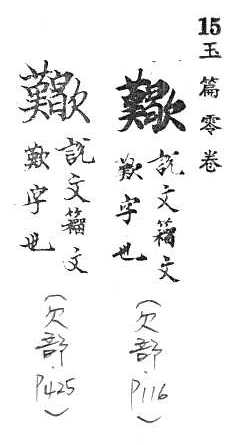 15
玉篇零卷
說文籀文
歎字也
(欠部.P116)
說文籀文
歎字也
(欠部.P425)